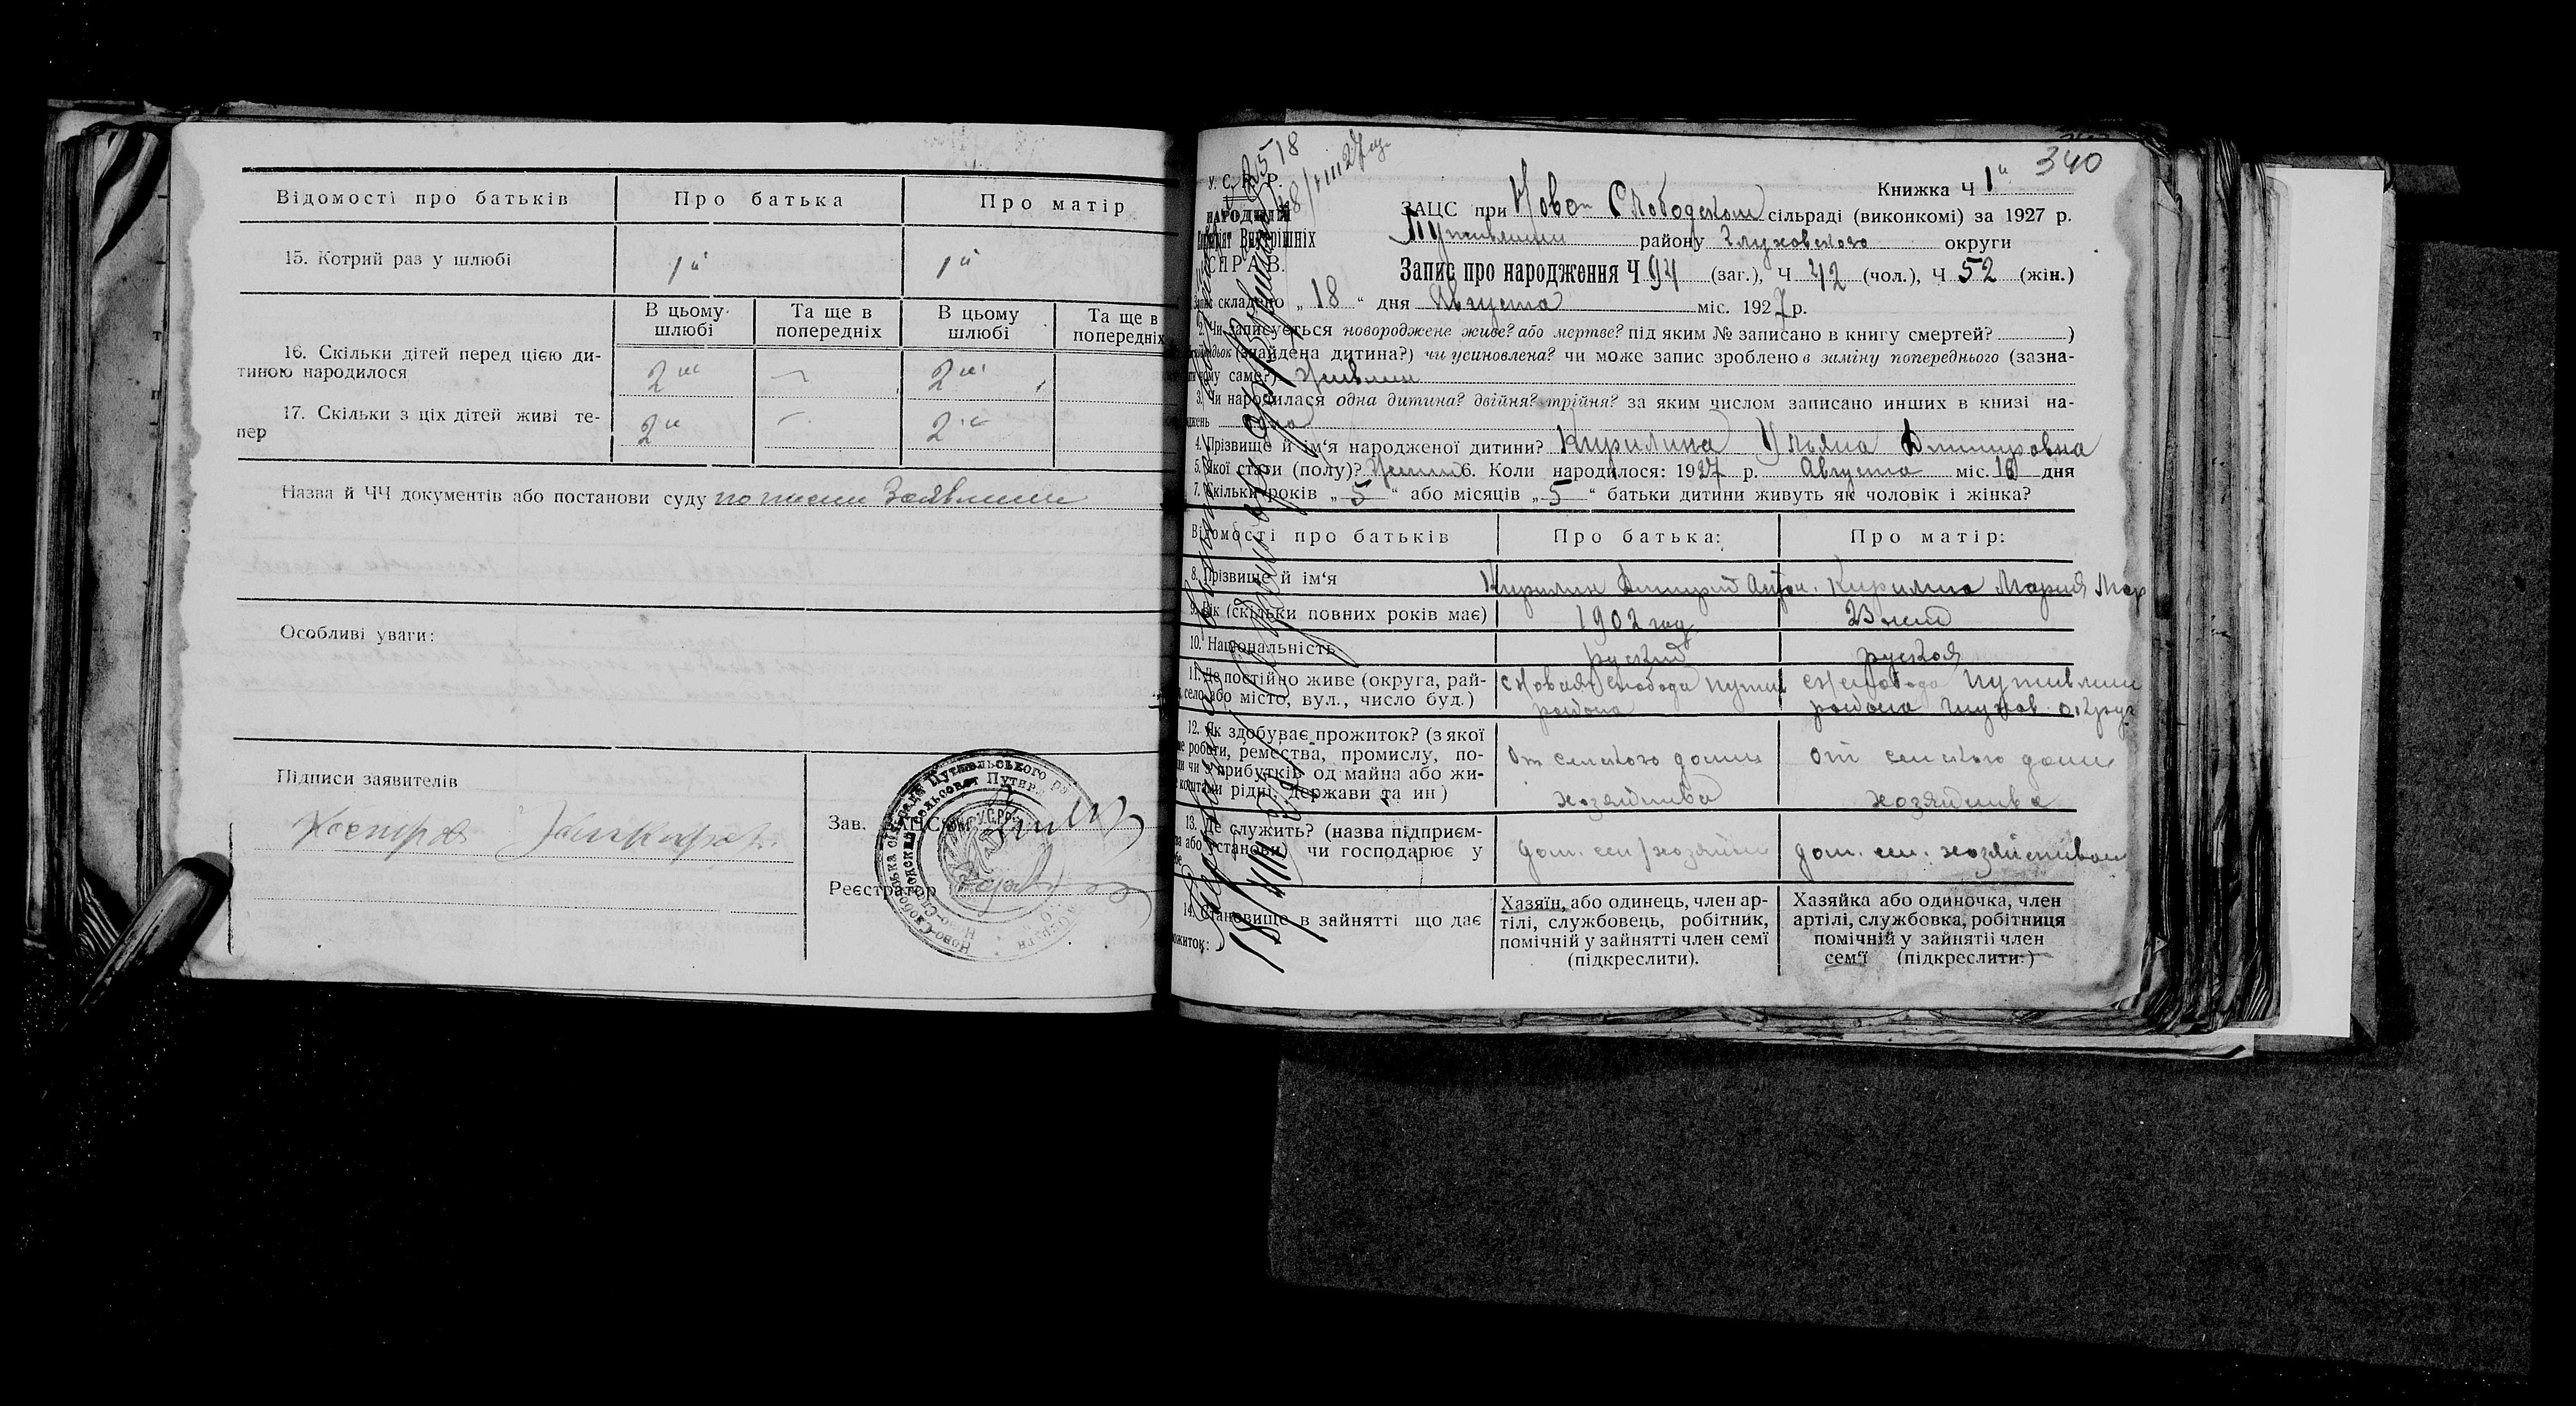 Відомості про батьків Про батька Про матір
15. Котрий раз у шлюбі 1й 1й
В цьому шлюбі Та ще в попередніх В цьому шлюбі Та ще в попередніх
16. Скільки дітей перед цією ди-
тиною народилося 2 2
17. Скільки з ціх дітей живі те-
пер 2 2
Назва й ЧЧ документів або постанови суду
Особливі уваги:
Підписи заявителів
Зав.
Реєстратор
340
2518
У. С. Р. Р.
Внутрішніх
СПРАВ.
Книжка Ч 1й
ЗАЦС при Ново Слободском сільраді (виконкомі) за 1927 р.
району Глуховского округи
Запис про народження Ч 94 (заг.), Ч 42 (чол.), Ч 52 (жін.)
складено „ 18 “ дня Августа міс. 1927 р.
2. Чи записується новороджене живе? або мертве? під яким № записано в книгу смертей? )
(знайдена дитина?) чи усиновлена? чи може запис зроблено в заміну попереднього (зазна-
саме?)
3. Чи народилася одна дитина? двійня? трійня? за яким числом записано инших в книзі на-
одна
4. Прізвище й ім‘я народженої дитини? Кирилина Ульяна Дмитровна
5. Якої стати (полу)? 6. Коли народилося: 1927 р. Августа міс. 16 дня
7. Скільки років „ 5 “ або місяців „ 5 “ батьки дитини живуть як чоловік і жінка?
Відомості про батьків Про батька: Про матір:
8. Прізвище й ім‘я Кирилин Дмитрий Кирилина Мария
9. Вік (скільки повних років має) 1902 год 23 лет
10. Національність руский руская
11. Де постійно живе (округа, рай-
село або місто, вул., число буд.) с Новая Слобода Путив района
района Глухов. округ
12. Як здобуває прожиток? (з якої
роботи, ремества, промислу, по-
чи з прибутків од майна або жи-
коштами рідні, держави та ин) От сельского домаш хозяйства от сельского домаш хозяйства
13. Де служить? (назва підприєм-
або установи) чи господарює у дом. сел хозяйст дом. сел. хозяйством
14. Становище в зайнятті що дає
Хазяїн, або одинець, член ар-
тілі, службовець, робітник,
помічній у зайнятті член семї
(підкреслити).
Хазяйка або одиночка, член
артілі, службовка, робітниця
помічній у зайнятії член
сем‘ї (підкреслити.)